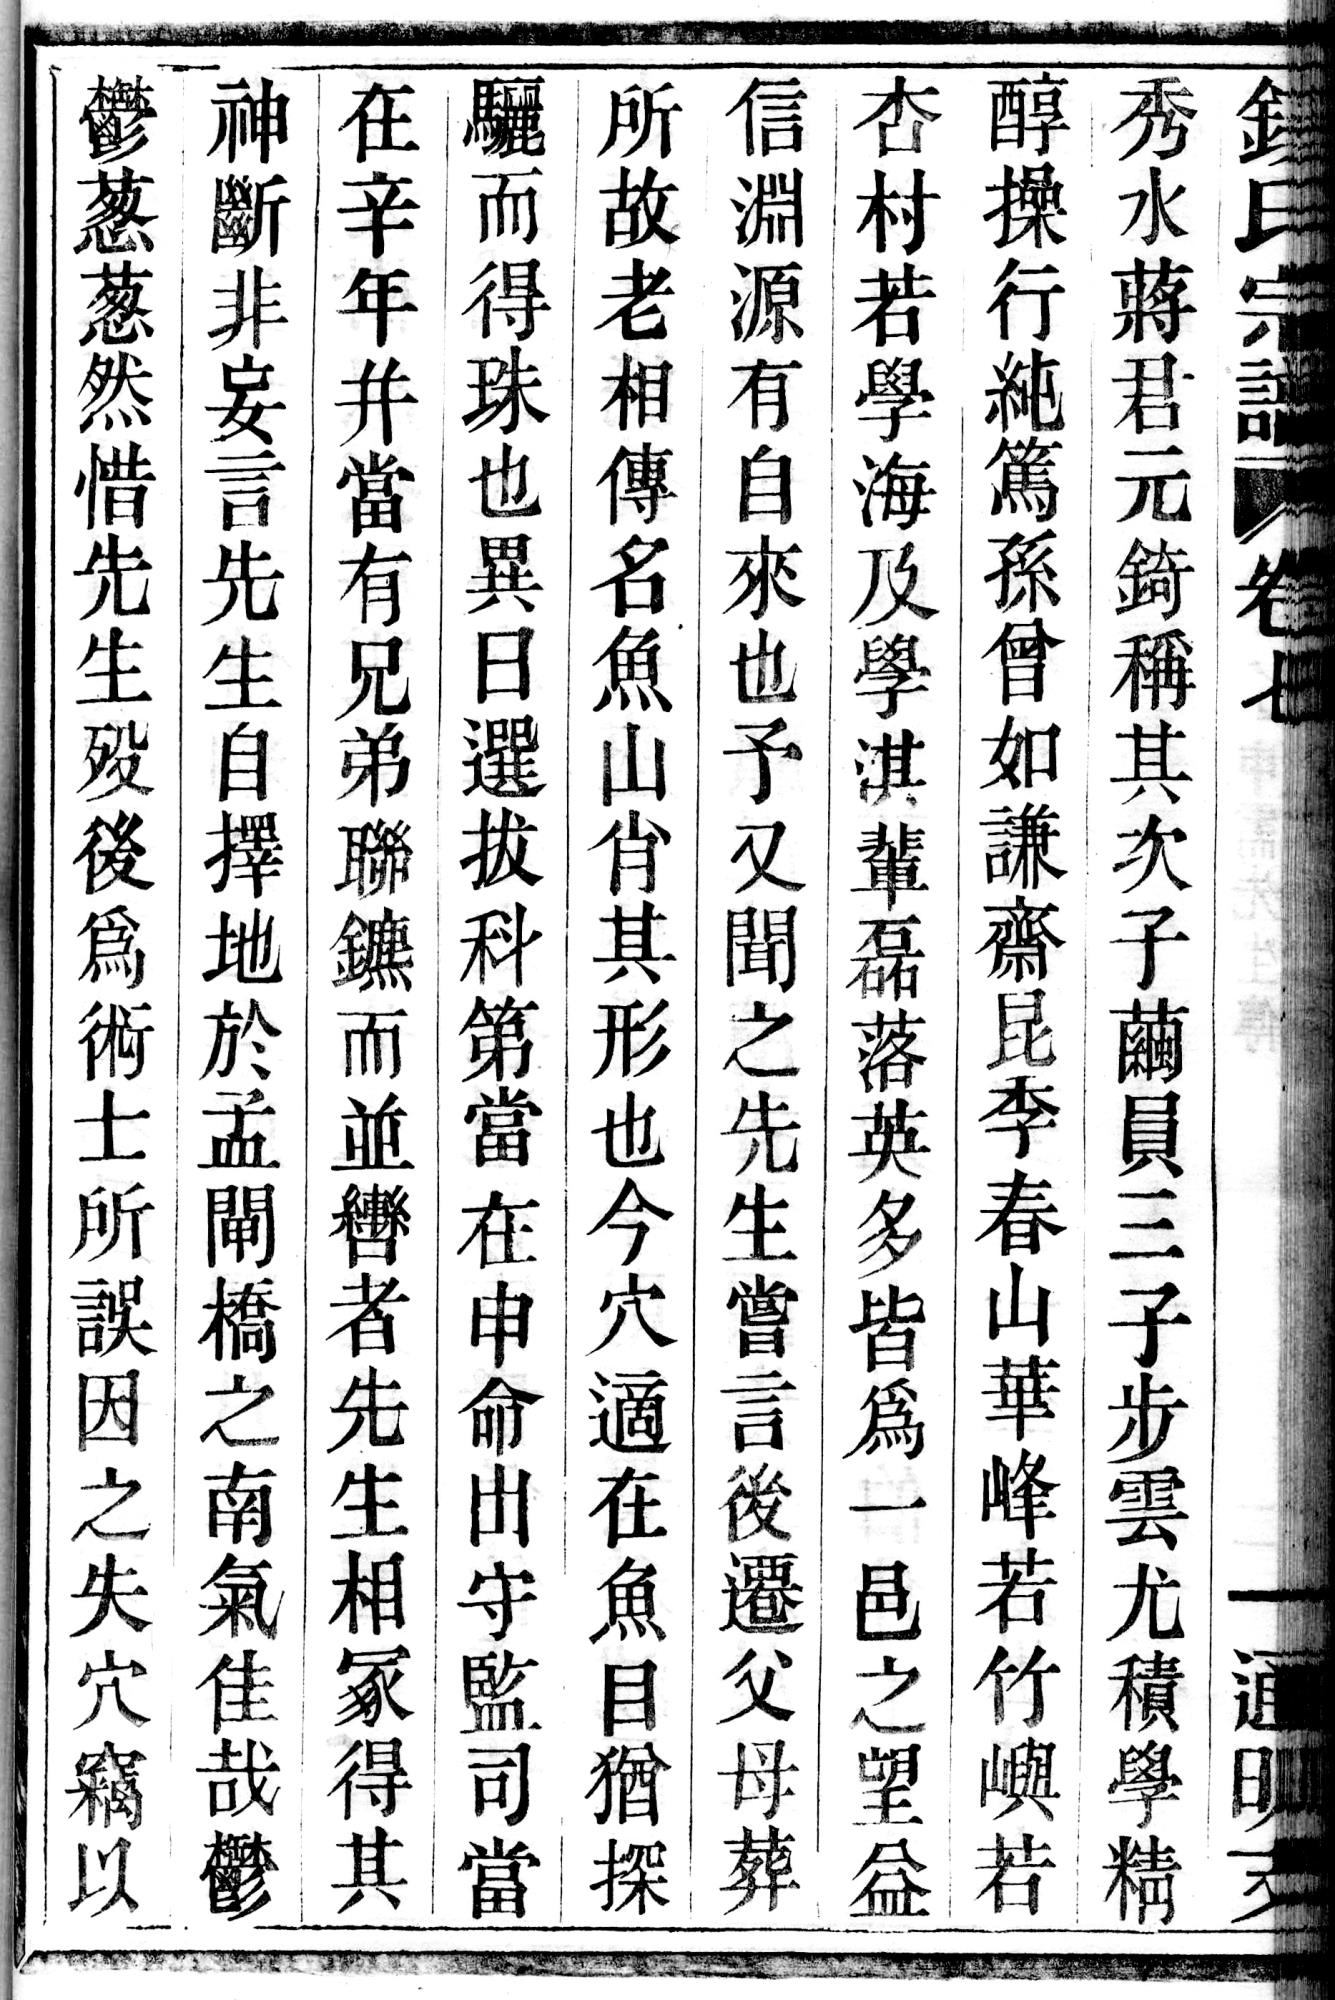 氏宗譜 卷七 一 通明
秀水蔣君元錡稱其次子蘭員三子步雲尤積學精
醇操行純篤孫曾如謙齋昆季春山華峰若竹嶼若
杏村若學海及學淇輩磊落英多皆爲一邑之望益
信淵源有自來也予又聞之先生嘗言後遷父母葬
所故老相傳名魚山肖其形也今穴適在魚目猶探
驪而得珠也異日選拔科第當在申命出守監司當
在辛年幷當有兄弟聯鑣而並轡者先生相冢得其
神斷非妄言先生自擇地於孟閘橋之南氣佳哉鬱
鬱葱葱然惜先生歿後爲術士所誤因之失穴竊以